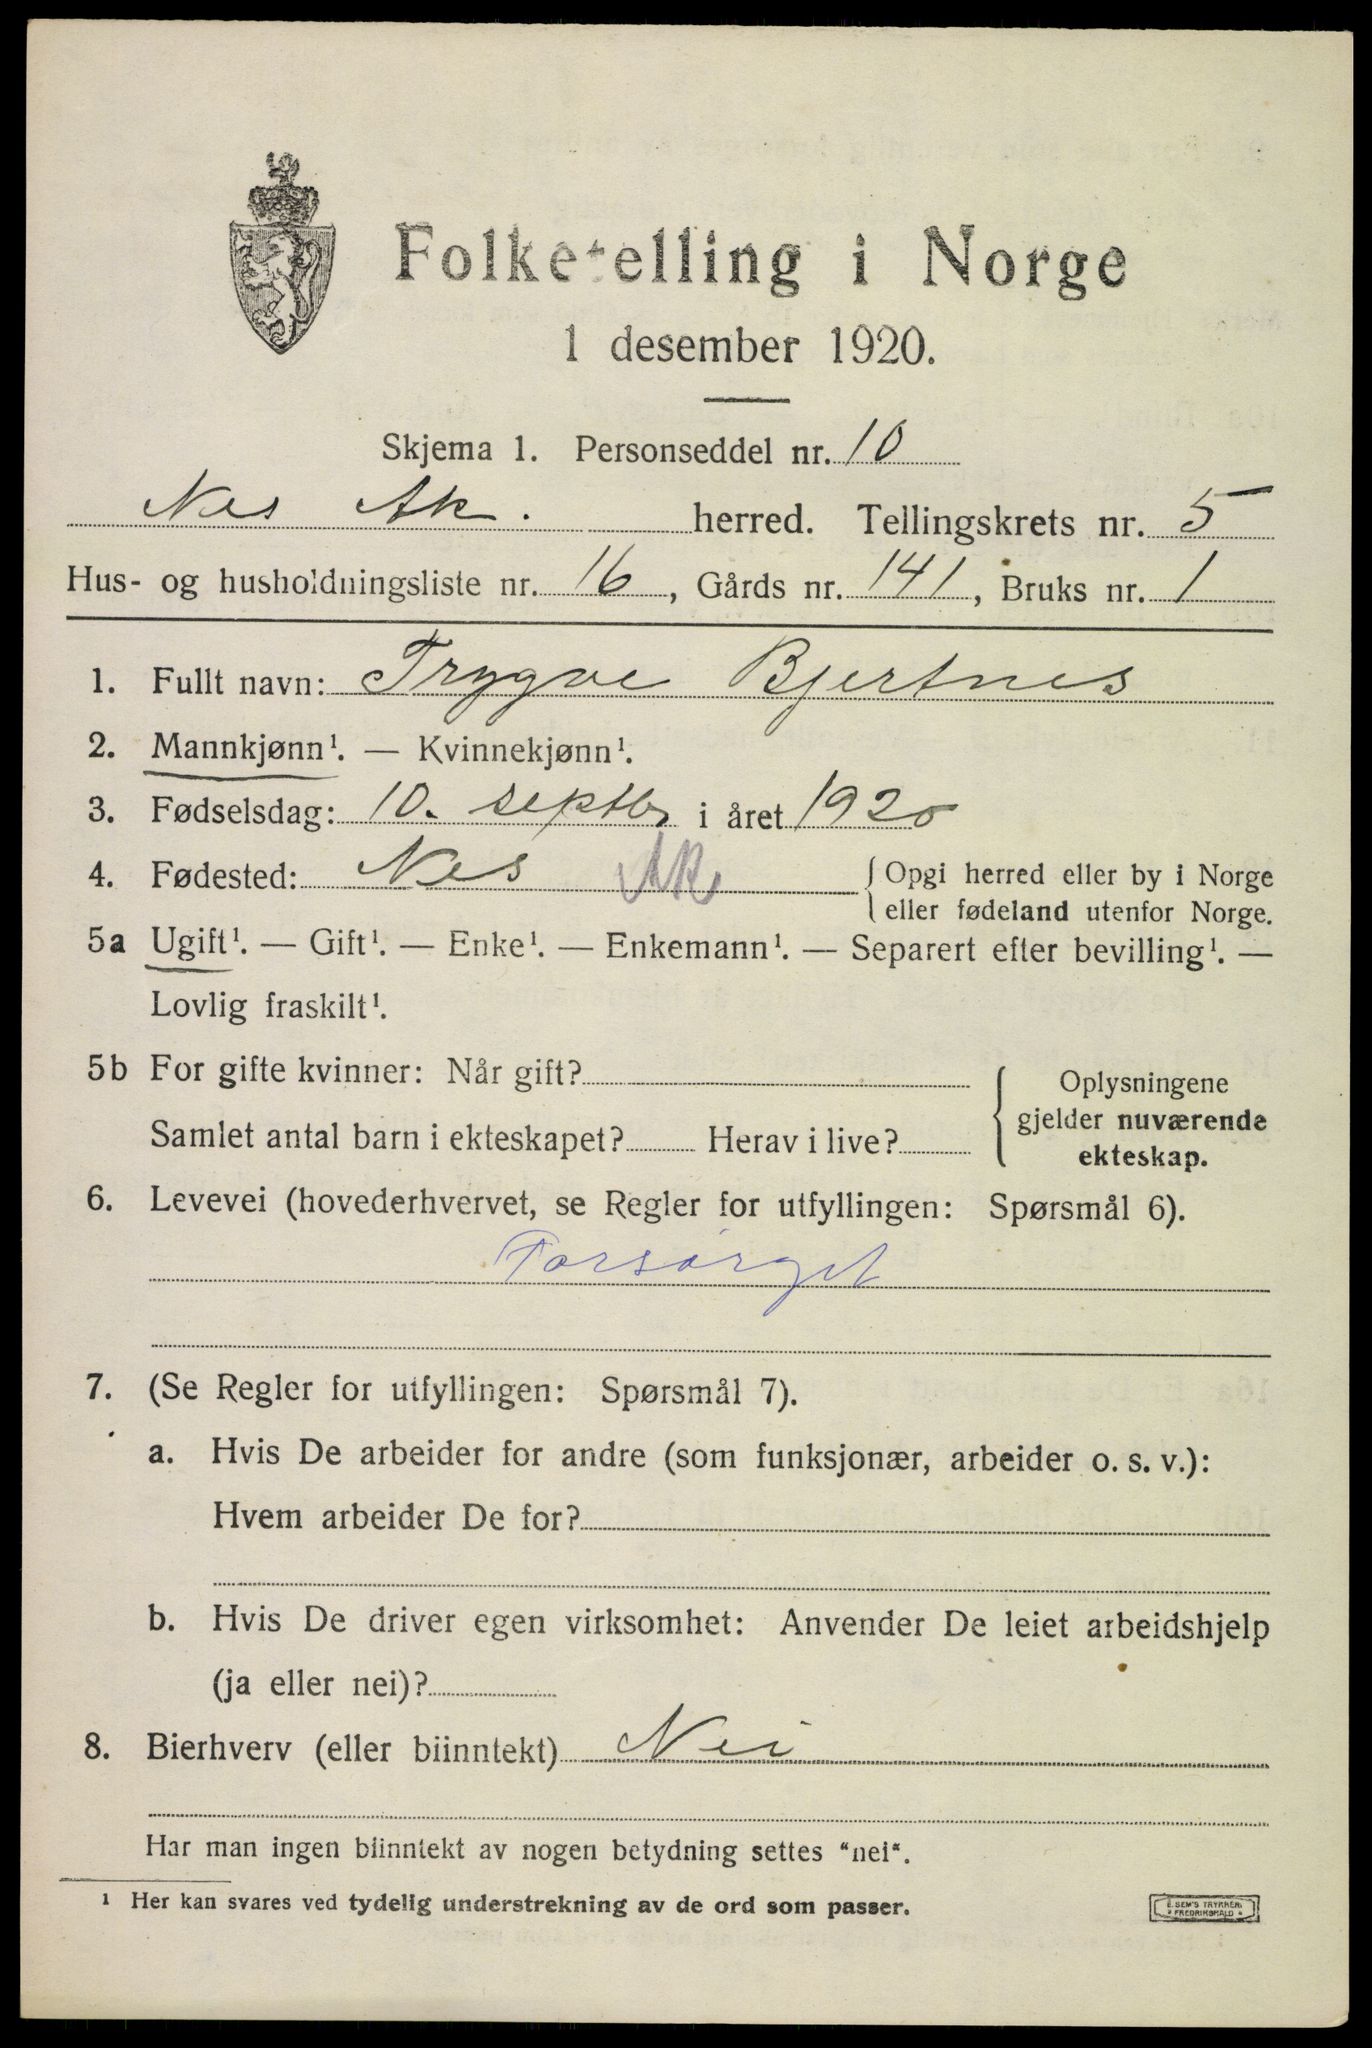 Folketelling i Norge
1 desember 1920.
Skjema 1. Personseddel nr. 10
Nes Ak. herred. Tellingskrets nr. 5
Hus- og husholdningsliste nr. 16, Gårds nr. 141, Bruks nr. 1
1. Fullt navn: Trygve Bjertnes
2. Mannkjønn¹. — Kvinnekjønn¹.
3. Fødselsdag: 10. septbr i året 1920
4. Fødested: Nes AK { Opgi herred eller by i Norge
eller fødeland utenfor Norge.
5a Ugift¹. — Gift¹. — Enke¹. — Enkemann¹. — Separert efter bevilling¹. —
Lovlig fraskilt¹.
5b For gifte kvinner: Når gift?
Samlet antal barn i ekteskapet? Herav i live?
{ Oplysningene
gjelder nuværende
ekteskap.
6. Levevei (hovederhvervet, se Regler for utfyllingen: Spørsmål 6).
Forsørget
7. (Se Regler for utfyllingen: Spørsmål 7).
a. Hvis De arbeider for andre (som funksjonær, arbeider o. s. v.):
Hvem arbeider De for?
b. Hvis De driver egen virksomhet: Anvender De leiet arbeidshjelp
(ja eller nei)?
8. Bierhverv (eller biinntekt) Nei
Har man ingen biinntekt av nogen betydning settes "nei".
¹ Her kan svares ved tydelig understrekning av de ord som passer.
E. SEM'S TRYKKERI
FREDRIKSHALD